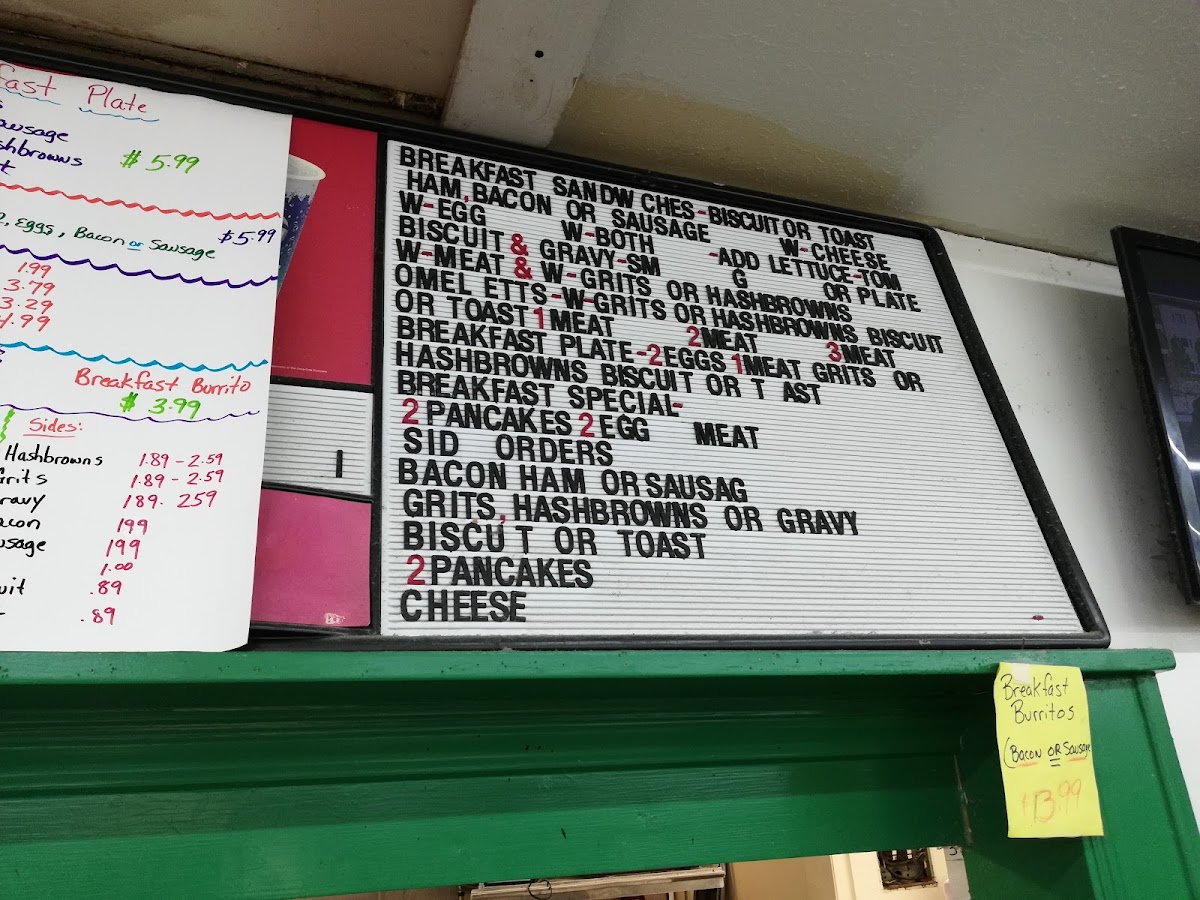 fast Plate
sausage
hashbrowns $5.99
, Eggs, Bacon or Sausage $5.99
1.99
3.79
3.29
4.99
Breakfast Burrito
$3.99
Sides:
Hashbrowns 1.89-2.59
Grits 1.89-2.59
ravy 189. 259
acon 199
usage 199
1.00
uit .89
.89
BREAKFAST SANDW CHES-BISCUIT OR TOAST
HAM,BACON OR SAUSAGE W-CHEESE
W-EGG W-BOTH -ADD LETTUCE-TOM
BISCUIT & GRAVY-SM G OR PLATE
W-MEAT & W-GRITS OR HASHBROWNS
OMEL ETTS-W-GRITS OR HASHBROWNS BISCUIT
OR TOAST 1 MEAT 2 MEAT 3 MEAT
BREAKFAST PLATE-2 EGGS 1 MEAT GRITS OR
HASHBROWNS BISCUIT OR T AST
BREAKFAST SPECIAL-
2 PANCAKES 2 EGG MEAT
SID ORDERS
BACON HAM OR SAUSAG
GRITS, HASHBROWNS OR GRAVY
BISCU T OR TOAST
2 PANCAKES
CHEESE
Breakfast
Burritos
(Bacon OR Sausage